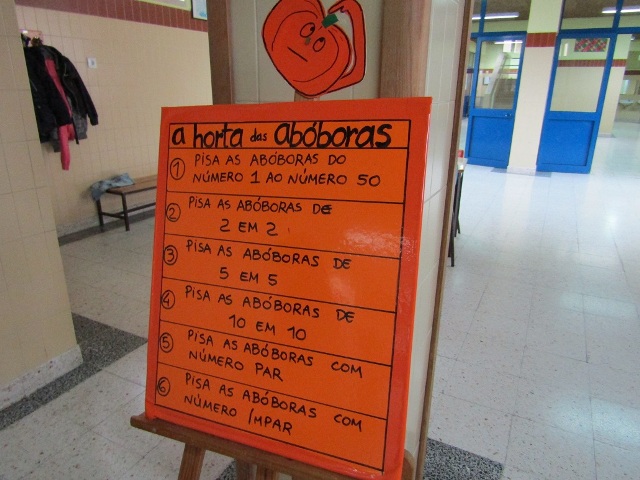 a horta das abóboras
1 PISA AS ABÓBORAS DO
NÚMERO 1 AO NÚMERO 50
2 PISA AS ABÓBORAS DE
2 EM 2
3 PISA AS ABÓBORAS DE
5 EM 5
4 PISA AS ABÓBORAS DE
10 EM 10
5 PISA AS ABÓBORAS COM
NÚMERO PAR
6 PISA AS ABÓBORAS COM
NÚMERO ÍMPAR